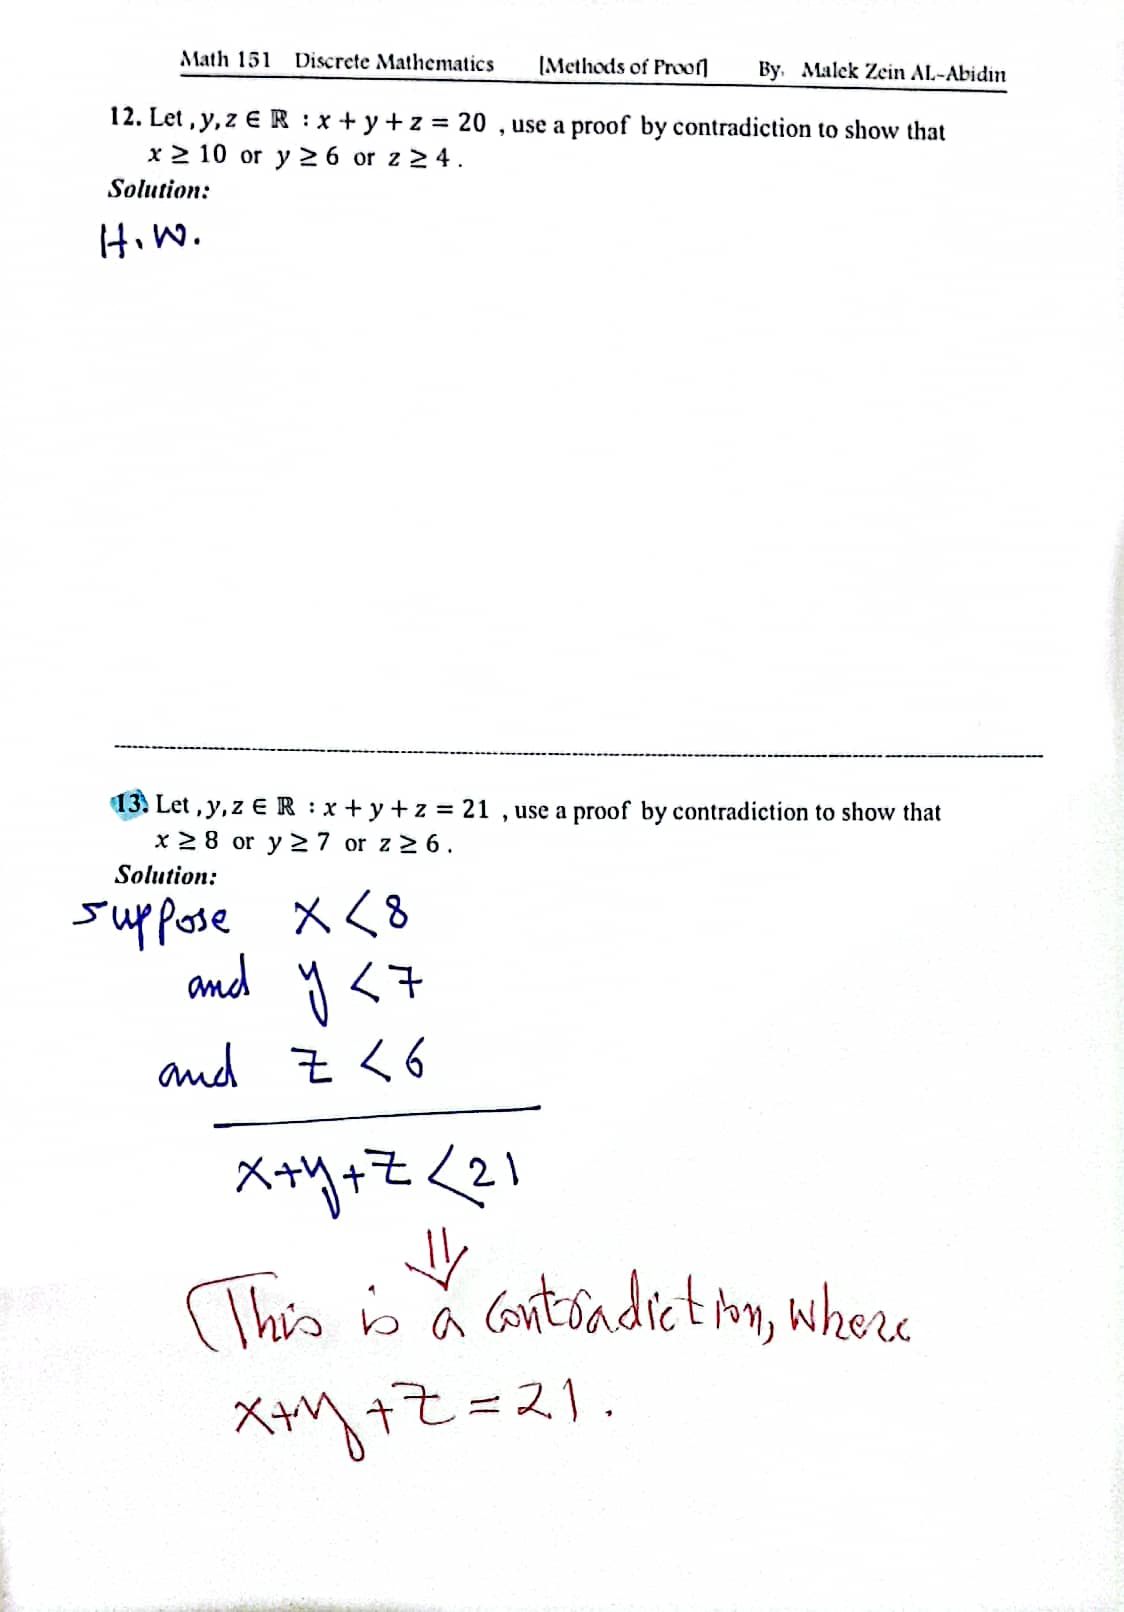 Math 151 Discrete Mathematics [Methods of Proof] By. Malek Zein AL-Abidin
12. Let , y, z ∈ ℝ : x + y + z = 20 , use a proof by contradiction to show that
x ≥ 10 or y ≥ 6 or z ≥ 4 .
Solution:
H.W.
13. Let , y, z ∈ ℝ : x + y + z = 21 , use a proof by contradiction to show that
x ≥ 8 or y ≥ 7 or z ≥ 6 .
Solution:
suppose x < 8
and y < 7
and z < 6
x+y+z < 21
⇓
This is a contradiction, where
x+y+z = 21 .